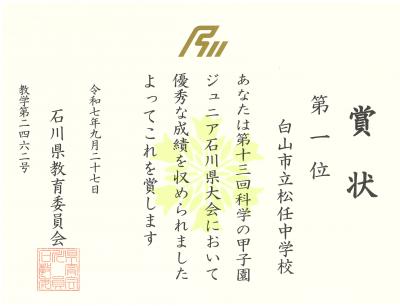 賞状
第一位
白山市立松任中学校
あなたは第十三回科学の甲子園
ジュニア石川県大会において
優秀な成績を収められました
よってこれを賞します
令和七年九月二十七日
石川県教育委員会
教学第二四六二号